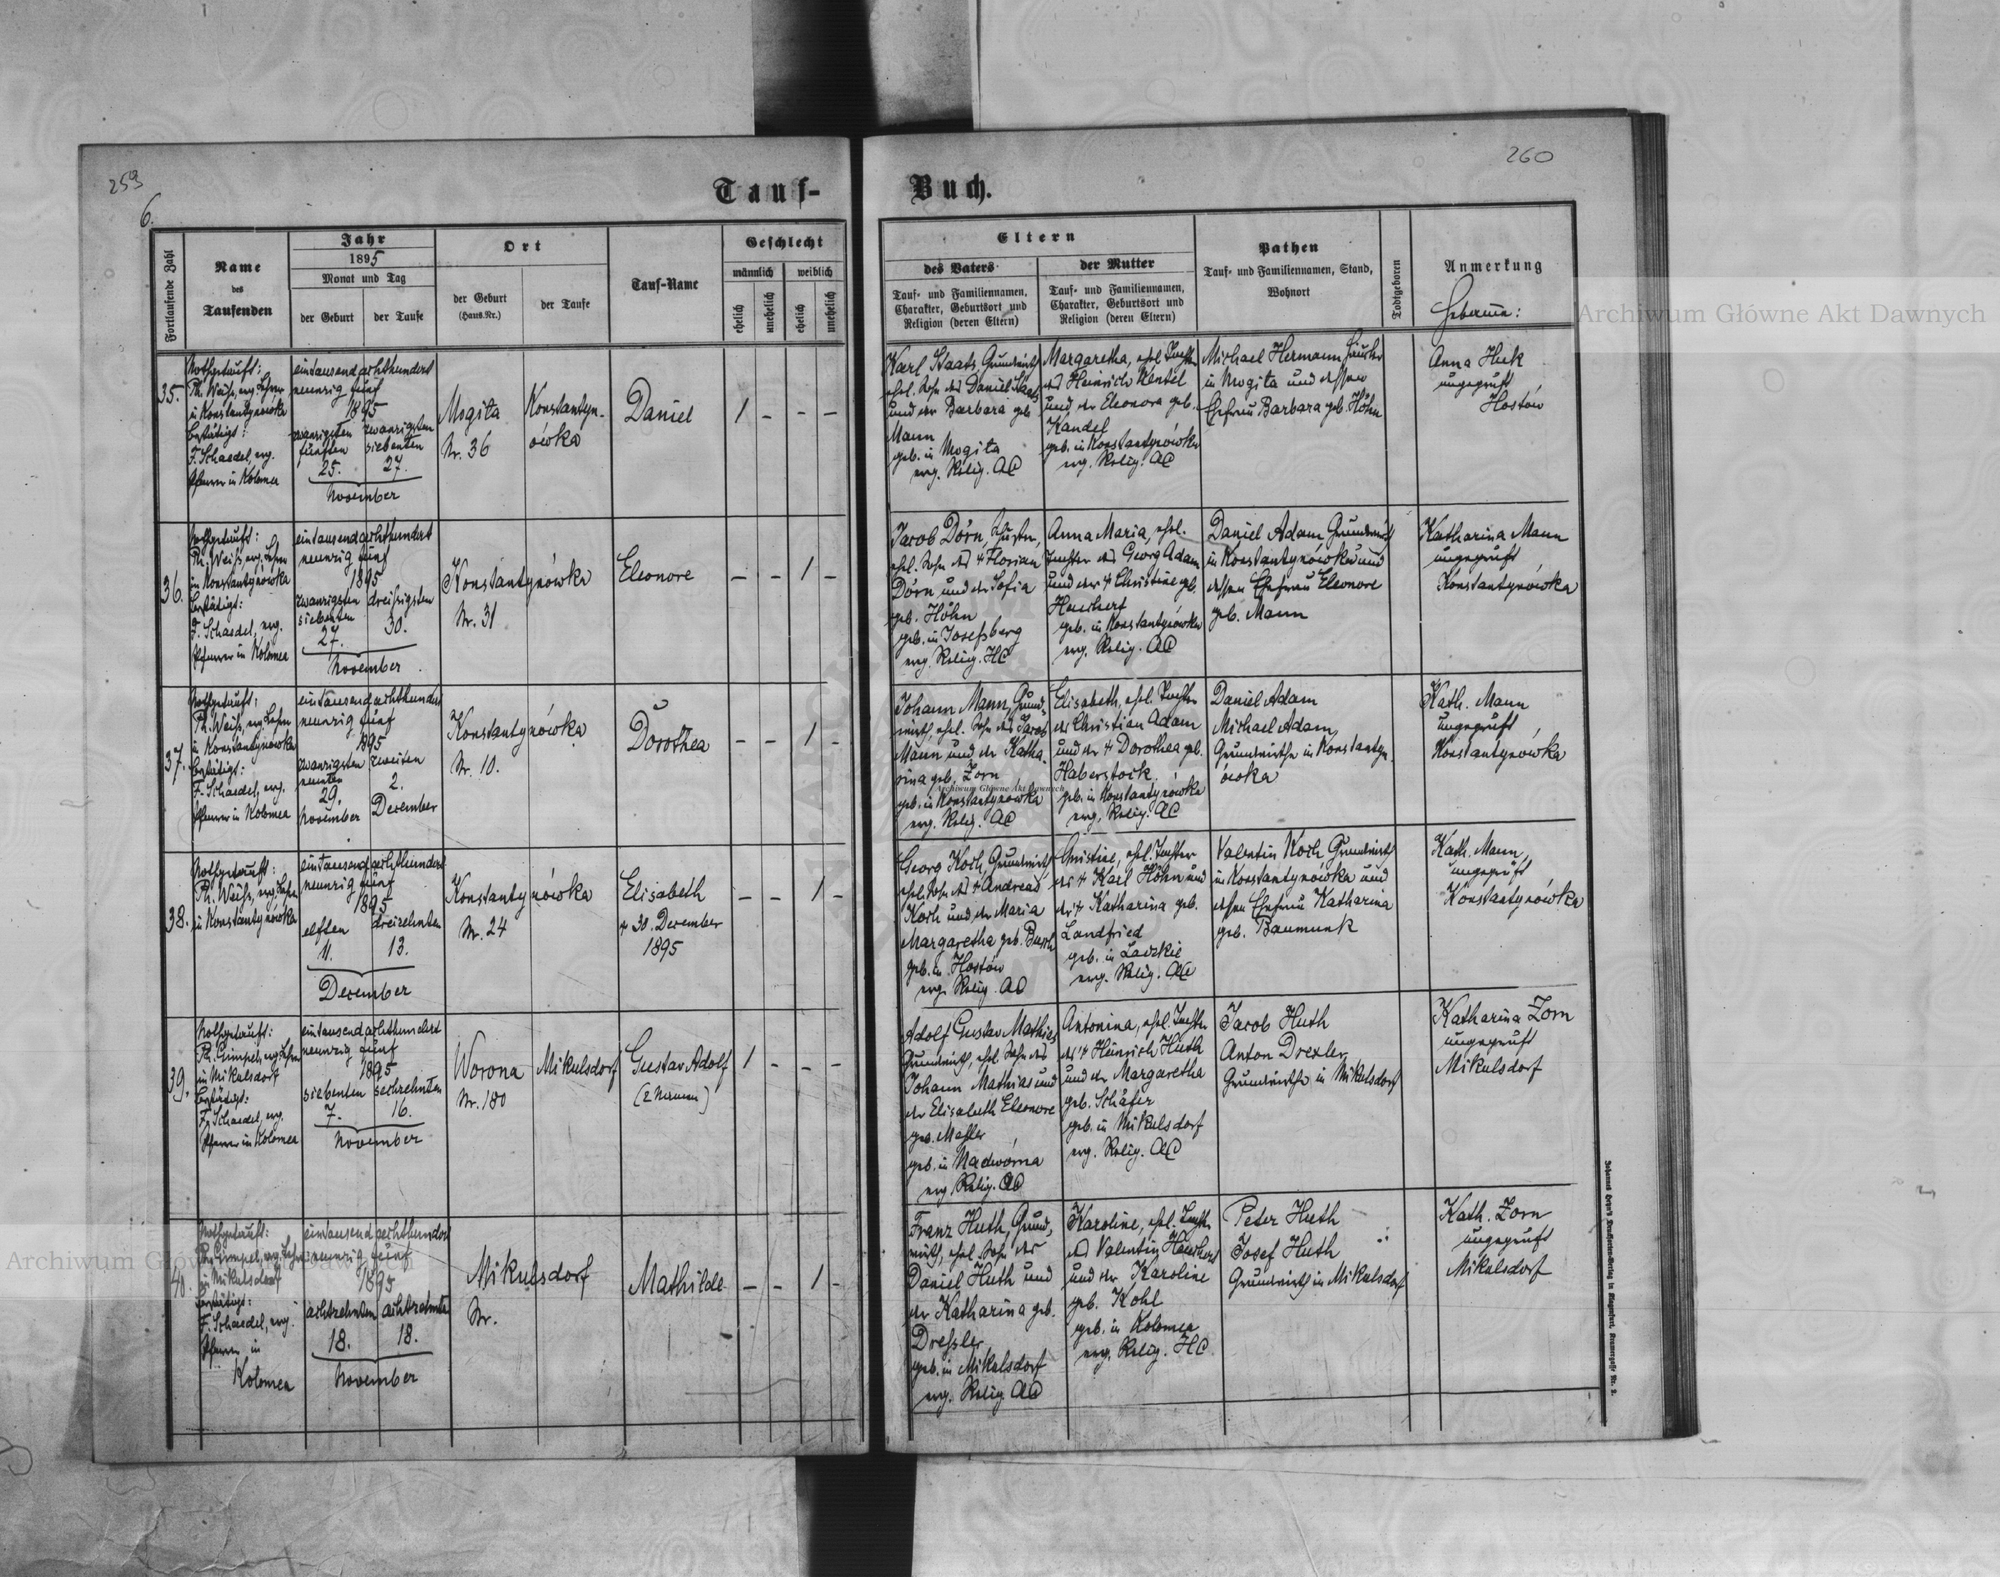 259
6.
260
Tauf-
Buch.
Fortlaufende Zahl
Name
des
Taufenden
Jahr
1895
Monat und Tag
der Geburt
der Taufe
Ort
der Geburt
(Haus.Nr.)
der Taufe
Tauf-Name
Geschlecht
männlich
weiblich
ehelich
unehelich
ehelich
unehelich
Eltern
des Vaters
der Mutter
Tauf- und Familiennamen,
Charakter, Geburtsort und
Religion (deren Eltern)
Tauf- und Familiennamen,
Charakter, Geburtsort und
Religion (deren Eltern)
Pathen
Tauf- und Familiennamen, Stand,
Wohnort
Todtgeboren
Anmerkung
Hebamme:
35.
Nothgetauft:
Ph. Weiß, evg. Lehrer
in Konstantynówka
bestätigt:
F. Schaedel, evg.
Pfarrer in Kolomea
eintausend achthundert
neunzig fünf
1895
zwanzigsten zwanzigsten
fünften siebenten
25. 27.
November
Mogita
Nr. 36
Konstantyn-
ówka
Daniel
1 - - -
Karl Staats, Grundwirth,
ehel. Sohn des Daniel Staats
und der Barbara geb.
Mann
geb. in Mogita
evg. Relig. AC
Margaretha, ehel. Tochter
des Heinrich Wentel
und der Eleonora geb.
Kandel
geb. in Konstantynówka
evg. Relig. AC
Michael Hermann
in Mogita und dessen
Ehefrau Barbara geb. Höhn
Anna Huk
ungeprüft
Hostów
36.
Nothgetauft:
Ph. Weiß, evg. Lehrer
in Konstantynówka
bestätigt:
F. Schaedel, evg.
Pfarrer in Kolomea
eintausend achthundert
neunzig fünf
1895
zwanzigsten dreißigsten
siebenten
27. 30.
November
Konstantynówka
Nr. 31
Eleonore
- - 1 -
Jacob Dörn, Schuster,
ehel. Sohn des † Florian
Dörn und der Sofia
geb. Höhn
geb. in Josefsberg
evg. Relig. HC
Anna Maria, ehel.
Tochter des Georg Adam
und der † Christine geb.
geb. in Konstantynówka
evg. Relig. AC
Daniel Adam Grundwirth
in Konstantynówka und
dessen Ehefrau Eleonore
geb. Mann
Katharina Mann
ungeprüft
Konstantynówka
37.
Nothgetauft:
Ph. Weiß, evg. Lehrer
in Konstantynówka
bestätigt:
F. Schaedel, evg.
Pfarrer in Kolomea
eintausend achthundert
neunzig fünf
1895
zwanzigsten zweiten
neunten
29. 2.
November December
Konstantynówka
Nr. 10.
Dorothea
- - 1 -
Johann Mann, Grund-
wirth, ehel. Sohn des Jacob
Mann und der Katha-
rina geb. Zorn
geb. in Konstantynówka
evg. Relig. AC
Elisabeth, ehel. Tochter
des Christian Adam
und der † Dorothea geb.
Haberstock
geb. in Konstantynówka
evg. Relig. AC
Daniel Adam
Michael Adam,
Grundwirthe in Konstantyn-
ówka
Kath. Mann
ungeprüft
Konstantynówka
38.
Nothgetauft:
Ph. Weiß, evg. Lehrer
in Konstantynówka
eintausend achthundert
neunzig fünf
1895
elften dreizehnten
11. 13.
December
Konstantynówka
Nr. 24
Elisabeth
† 30. December
1895
- - 1 -
Georg Koch, Grundwirth,
ehel. Sohn des † Andreas
Koch und der Maria
Margaretha geb. Busch
geb. in Hostów
evg. Relig. AC
Christine, ehel. Tochter
des † Karl Höhn und
der † Katharina geb.
Landfried
geb. in
evg. Relig. AC
Valentin Koch Grundwirth
in Konstantynówka und
dessen Ehefrau Katharina
geb. Baumunk
Kath. Mann,
ungeprüft
Konstantynówka
39.
Nothgetauft:
Ph. Gimpel, evg. Lehrer
in Mikulsdorf
bestätigt:
F. Schaedel, evg.
Pfarrer in Kolomea
eintausend achthundert
neunzig fünf
1895
siebenten sechzehnten
7. 16.
November
Worona
Nr. 180
Mikulsdorf
Gustav Adolf
(2 Namen)
1 - - -
Adolf Gustav Mathies
Grundwirth, ehel. Sohn des
Johann Mathias und
der Elisabeth Eleonore
geb.
geb. in Nadwórna
evg. Relig. AC
Antonina, ehel. Tochter
des † Heinrich Huth
und der Margaretha
geb. Schäfer
geb. in Mikulsdorf
evg. Relig. AC
Jacob Huth
Anton Drexler
Grundwirthe in Mikulsdorf
Katharina Zorn
ungeprüft
Mikulsdorf
40.
Nothgetauft:
Ph. Gimpel, evg. Lehrer
in Mikulsdorf
bestätigt:
F. Schaedel, evg.
Pfarrer in
Kolomea
eintausend achthundert
neunzig fünf
1895
achtzehnten achtzehnten
18. 18.
November
Mikulsdorf
Nr.
Mathilde
- - 1 -
Franz Huth, Grund-
wirth, ehel. Sohn des
Daniel Huth und
der Katharina geb.
Dreßler
geb. in Mikulsdorf
evg. Relig. AC
Karoline, ehel. Tochter
des Valentin
und der Karoline
geb. Kohl
geb. in Kolomea
evg. Relig. HC
Peter Huth
Josef Huth
Grundwirth in Mikulsdorf
Kath. Zorn
ungeprüft
Mikulsdorf
Archiwum Główne Akt Dawnych
Archiwum Główne Akt Dawnych
Archiwum Główne Akt Dawnych